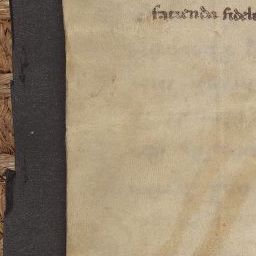 facienda fidel